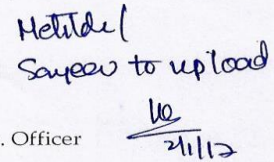 Metilde/
Sanjeev to upload
. Officer
2/1/12